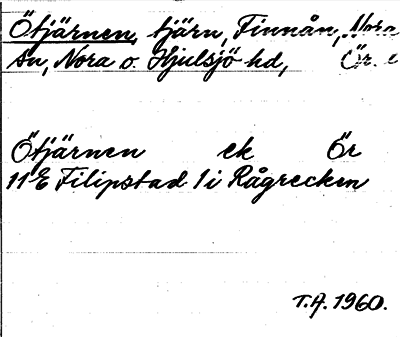 Ötjärnen, tjärn, Finnån, Nora
sn, Nora o. Hjulsjö hd, Ör.
Ötjärnen ek Ör
11 E Filipstad 1 i Rågrecken
T.A. 1960.